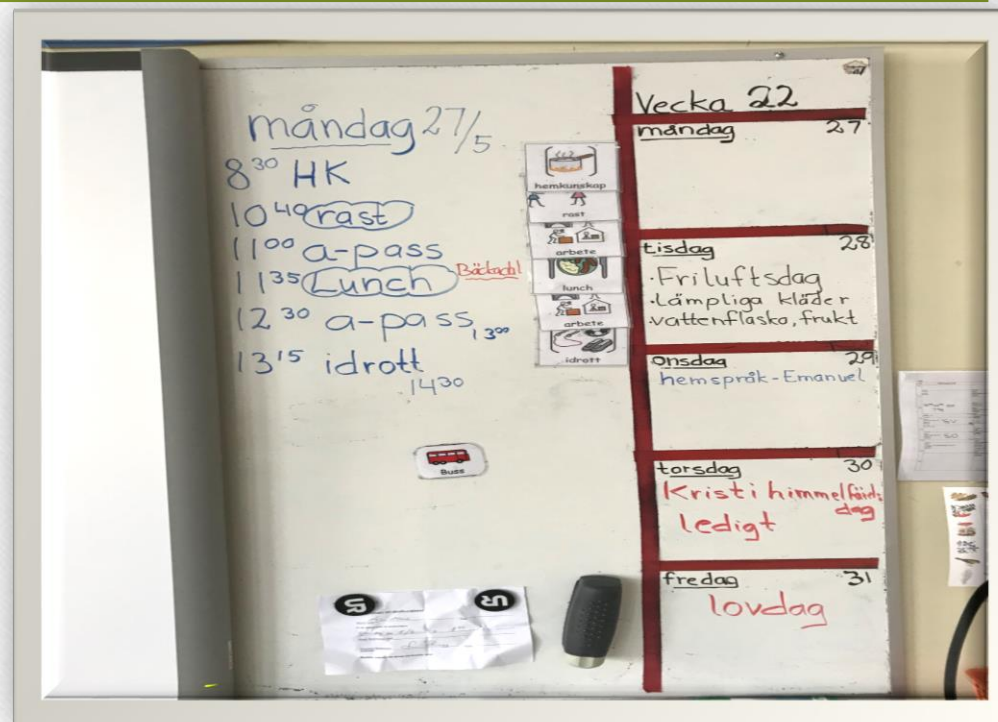 måndag 27/5
8³⁰ HK
10⁴⁰ rast
11⁰⁰ a-pass
11³⁵ Lunch
12³⁰ a-pass 13⁰⁰
13¹⁵ idrott
14³⁰
hemkunskap
rast
arbete
lunch
arbete
idrott
Buss
UR
UR
Vecka 22
måndag 27
tisdag 28
·Friluftsdag
·Lämpliga kläder
·vattenflaska, frukt
onsdag 29
hemspråk-Emanuel
torsdag 30
Kristi himmelfärds
dag
ledigt
fredag 31
lovdag